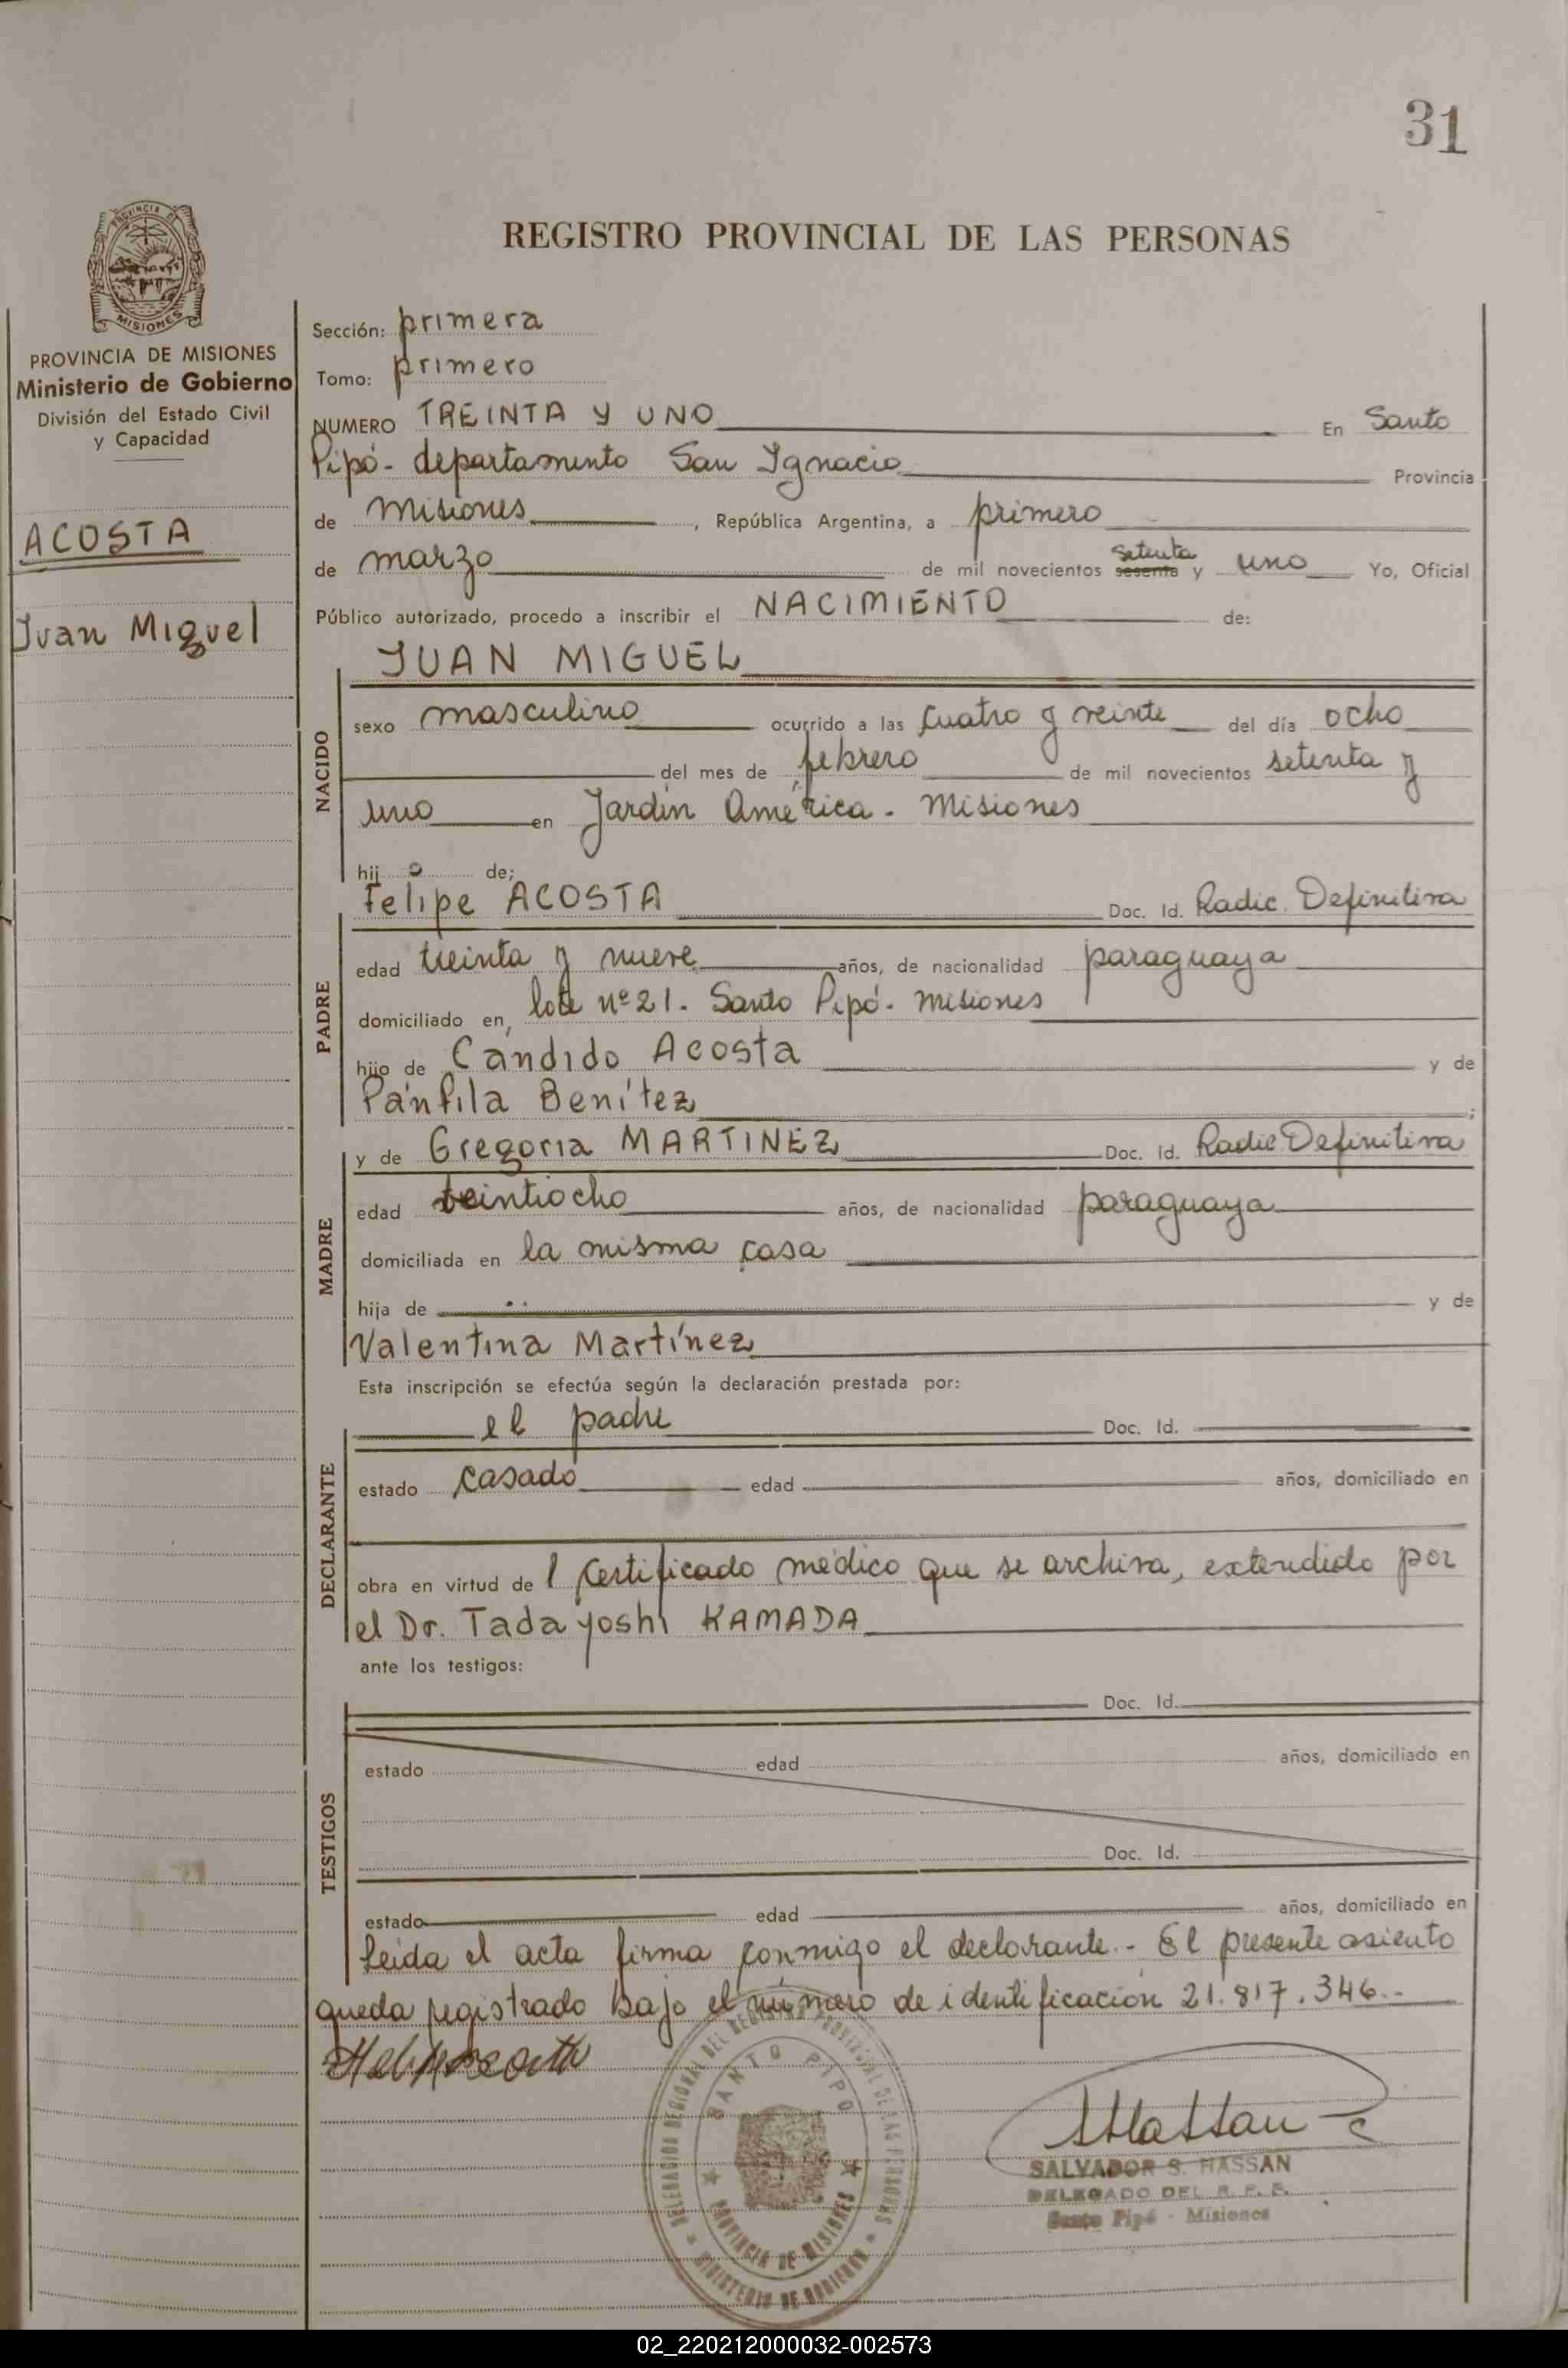 31
REGISTRO PROVINCIAL DE LAS PERSONAS
PROVINCIA DE
MISIONES
PROVINCIA DE MISIONES
Ministerio de Gobierno
División del Estado Civil
y Capacidad
ACOSTA
Juan Miguel
Sección: primera
Tomo: primero
NUMERO TREINTA Y UNO En Santo
Pipó - departamento San Ignacio Provincia
de Misiones, República Argentina, a primero
de marzo de mil novecientos sesenta setenta y uno Yo, Oficial
Público autorizado, procedo a inscribir el NACIMIENTO de:
JUAN MIGUEL
NACIDO
sexo masculino ocurrido a las cuatro y veinte del día ocho
del mes de febrero de mil novecientos setenta y
uno en Jardín América - Misiones
hijo de;
PADRE
Felipe ACOSTA Doc. Id. Radic. Definitiva
edad treinta y nueve años, de nacionalidad paraguaya
domiciliado en, lote nº 21 - Santo Pipó - Misiones
hijo de Cándido Acosta y de
Pánfila Benítez;
MADRE
y de Gregoria MARTINEZ Doc. Id. Radic Definitiva
edad veintiocho años, de nacionalidad paraguaya
domiciliada en la misma casa
hija de y de
Valentina Martínez
Esta inscripción se efectúa según la declaración prestada por:
DECLARANTE
el padre Doc. Id.
estado casado edad años, domiciliado en
obra en virtud de l certificado médico que se archiva, extendido por
el Dr. Tadayoshi KAMADA
ante los testigos:
TESTIGOS
Doc. Id.
estado edad años, domiciliado en
Doc. Id.
estado edad años, domiciliado en
Leída el acta firma conmigo el declarante.- El presente asiento
queda registrado bajo el número de identificación 21.817.346.-
DELEGACION REGIONAL DEL REGISTRO PROVINCIAL DE LAS PERSONAS
SANTO PIPO
PROVINCIA DE MISIONES
MINISTERIO DE GOBIERNO
SALVADOR S. HASSAN
DELEGADO DEL R. P. P.
Santo Pipó - Misiones
02_220212000032-002573